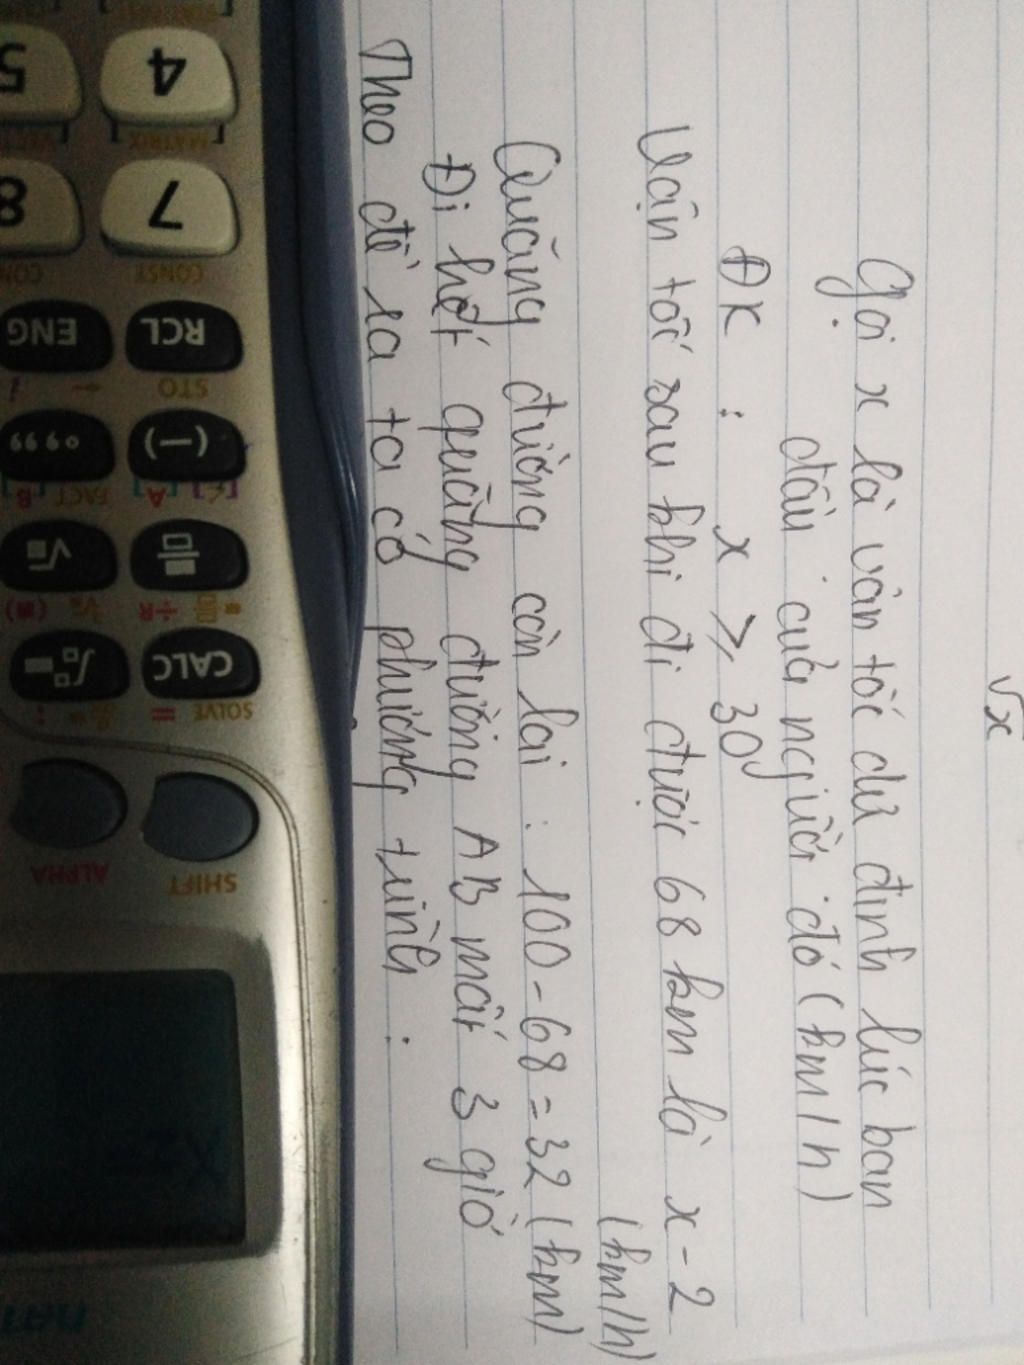 √x
Gọi x là vân tốc dư định lúc ban
đầu của người đó (km/h)
ĐK : x ≥ 30
Vận tốc sau khi đi được 68 km là x - 2
(km/h)
Quãng đường còn lại : 100 - 68 = 32 (km)
Đi hết quãng đường AB mất 3 giờ
Theo đề ra ta có phương trình :
SHIFT
ALPHA
SOLVE =
:
CALC
÷R
(-)
FACT B
[A]
STO
←
i
RCL
ENG
CONST
CON
7
8
[MATRIX]
VECT
4
5
X2=